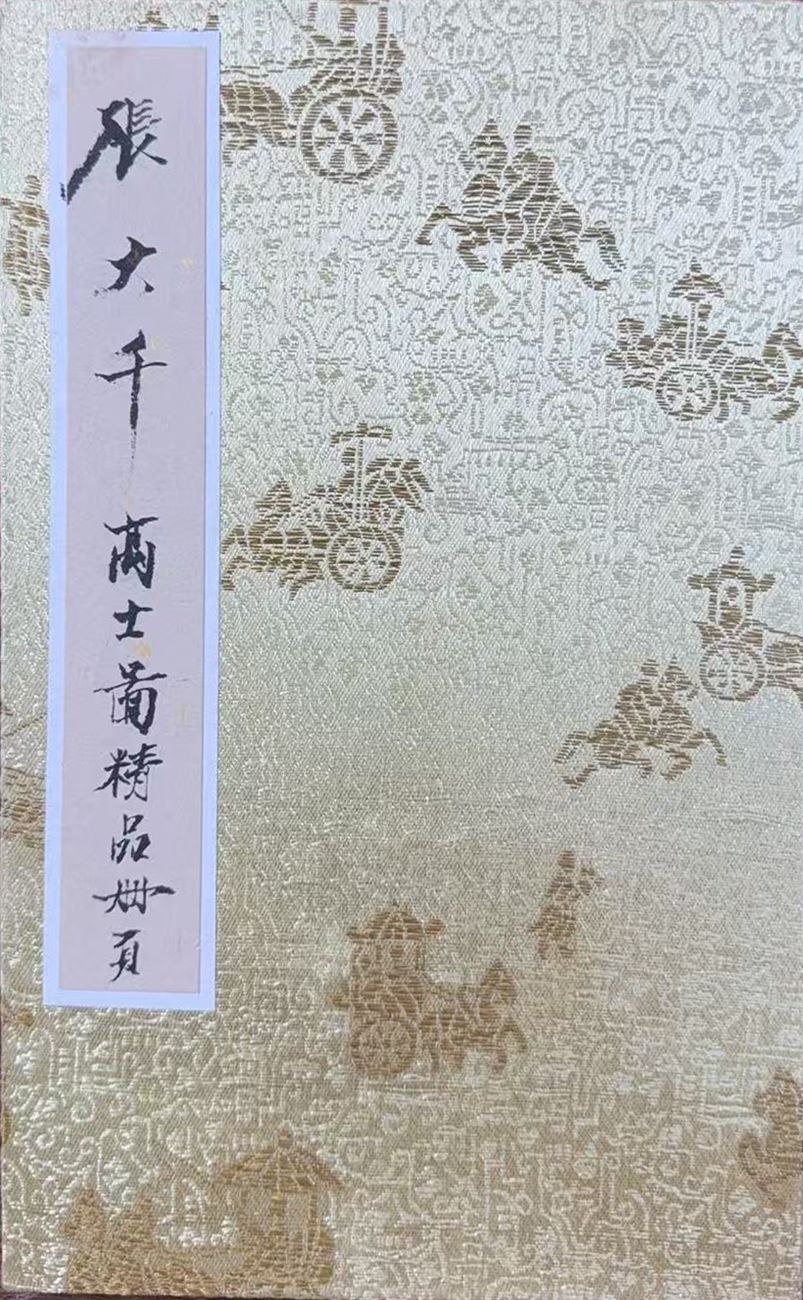 張大千高士啚精品册頁